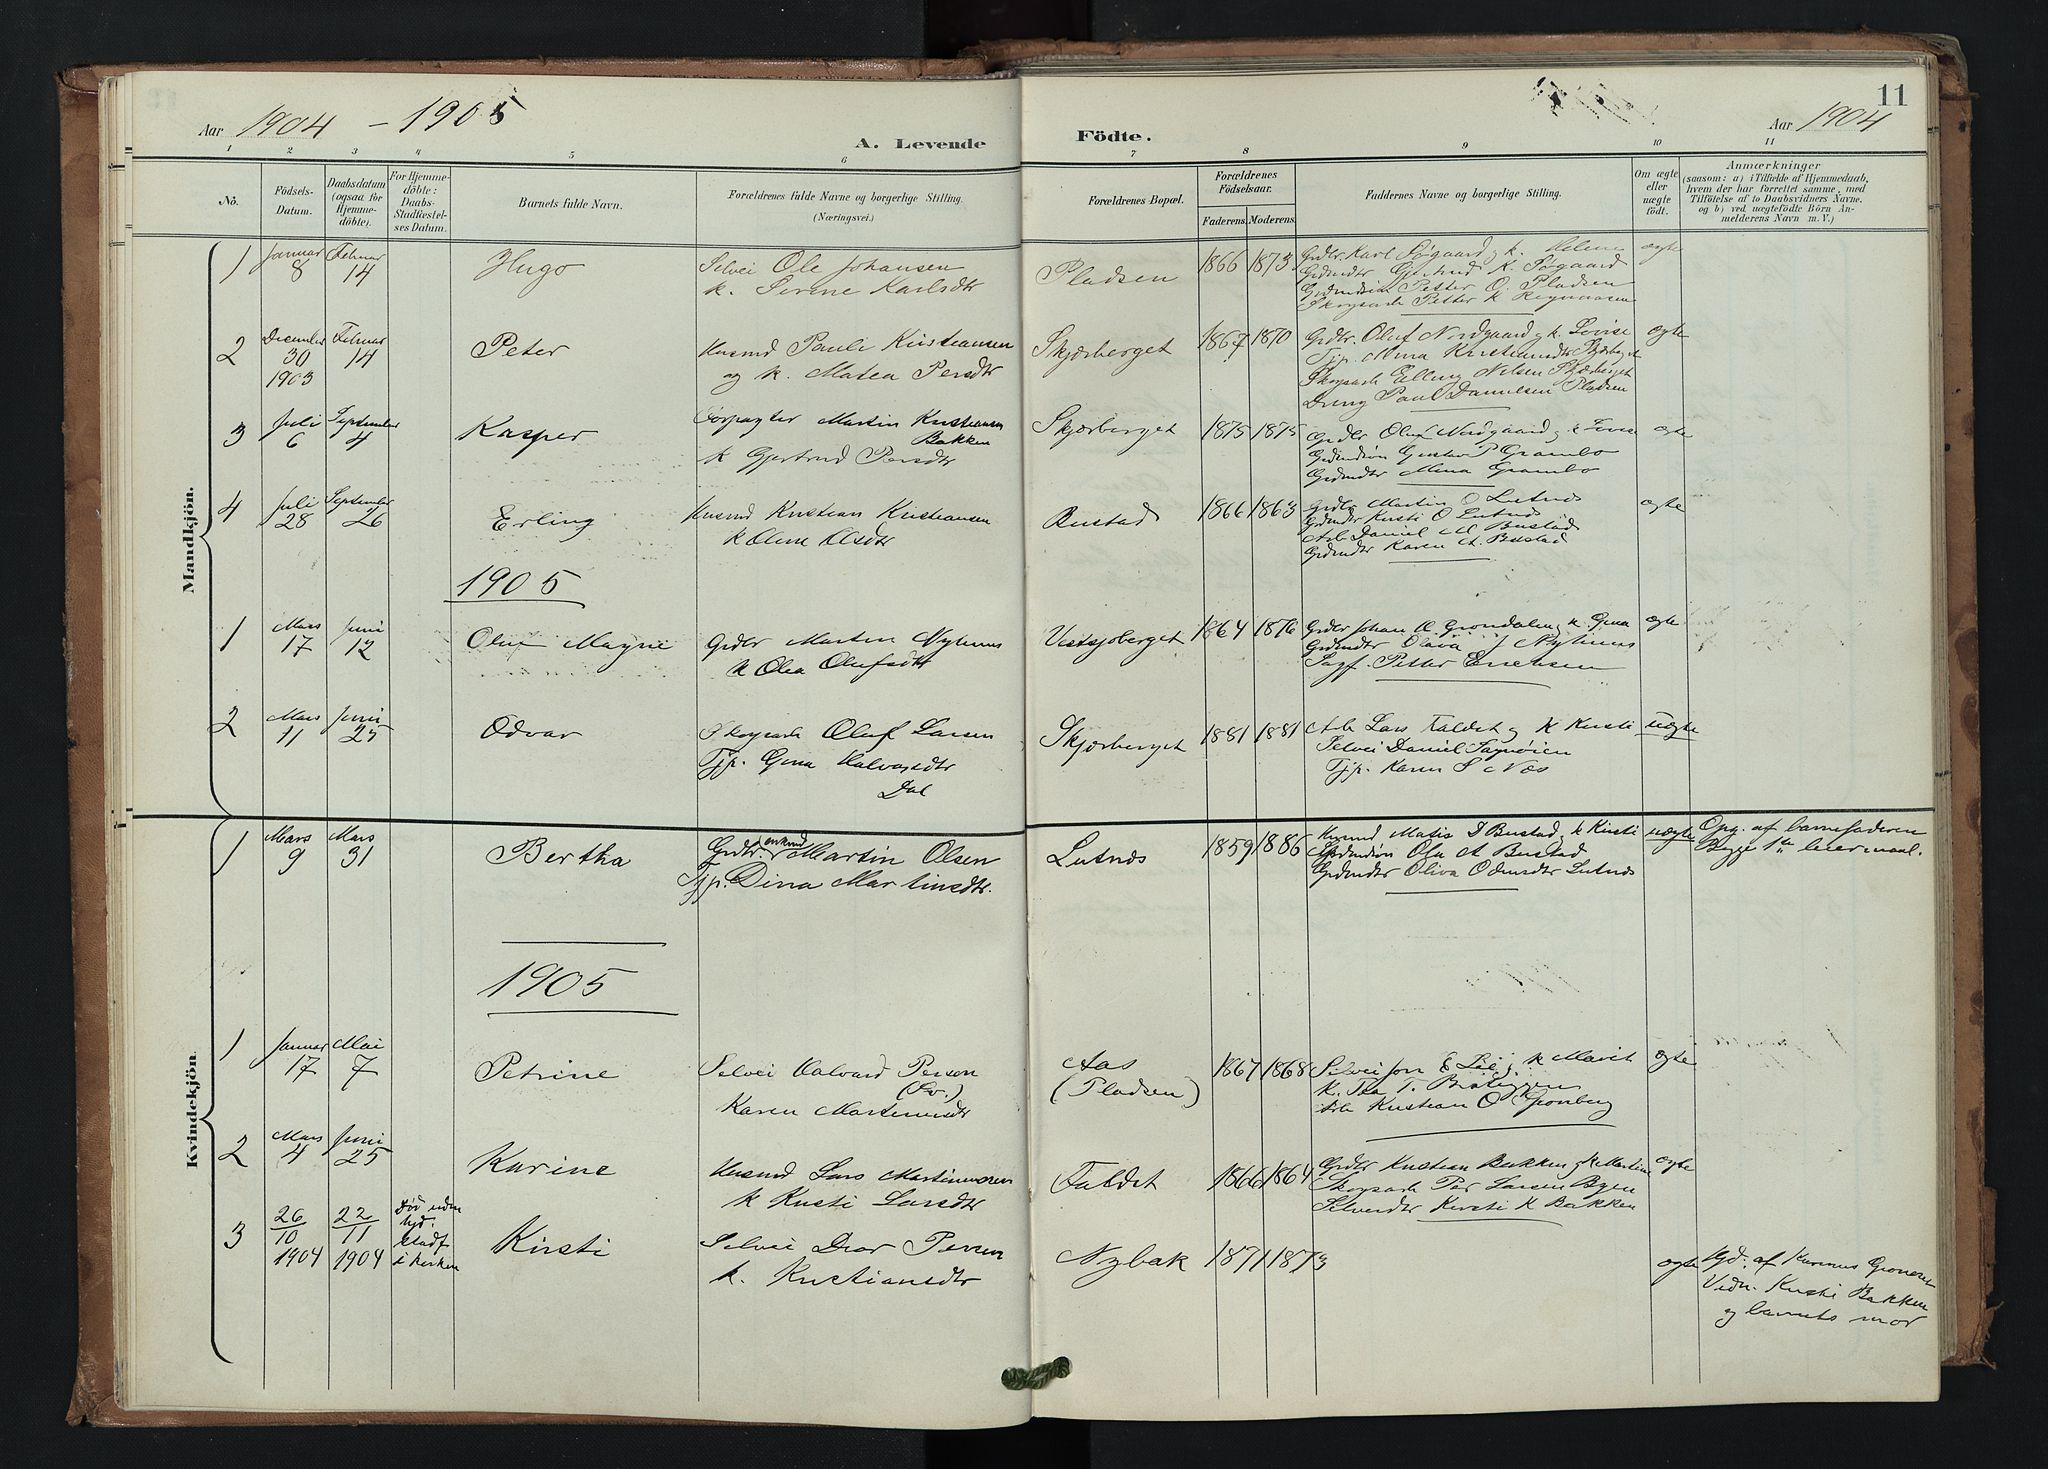 Aar 1904 - 1905
A. Levende
Födte.
Aar 1904
11
1 2 3 4 5 6 7 8 9 10 11
No.
Födsels-
Datum.
Daabsdatum
(ogsaa for
Hjemme-
döbte).
For Hjemme-
döbte:
Daabs-
Stadfæstel-
ses Datum.
Barnets fulde Navn.
Forældrenes fulde Navne og borgerlige Stilling.
(Næringsvei.)
Forældrenes Bopæl.
Forældrenes
Födselsaar.
Faderens. Moderens.
Faddernes Navne og borgerlige Stilling.
Om ægte
eller
uægte
födt.
Anmærkninger
(saasom: a) i Tilfælde af Hjemmedaab,
hvem der har forrettet samme, med
Tilföielse af to Daabsvidners Navne.
og b) ved uægtefödte Börn An-
melderens Navn m. V.)
Mandkjön.
1 Januar 8 Februar 14 Hugo
Selvei Ole Johansen
k. Serine Karlsdtr
Pladsen 1866 1873
Grdbr. Karl Søgaard, k. Helene
Grdmdtr Gjertrud K. Søgaard
Grdmdsön Petter O. Pladsen
Skogsarb Petter K
ægte
2 December 30 1903 Februar 14 Peter
Husmd Paul Kristiansen
og k. Matea Persdtr
Skjærberget 1867 1870
Grdbr. Oluf Nordgaard, k. Lovise
Tjp. Mina Kristiansdtr Skjærberget
Skogsarb Elling Nilsen Skjærberget
Dreng Paul Danielsen Pladsen
ægte
3 Juli 6 September 4 Kasper
Forpagter Martin Kristiansen
Bakken
k Gjertrud Persdtr
Skjærberget 1875 1875
Grdbr Oluf Nordgaard, k Lovise
Grdmdsön Gustav P Grambo
Grdmdtr Mina Grambo
ægte
4 Juli 28 September 26 Erling
Husmd Kristian Kristiansen
k Oline Olsdtr
Bustad 1866 1863
Grdbr Martin O Lutnæs
Grdmdtr Kirsti O Lutnæs
Arb Daniel M Bustad
Grdmdtr Karen A. Bustad
ægte
1905
1 Mars 17 Juni 12 Oluf Magne
Grdbr Martin Nylænes
k Olea Olufsdtr
Vestsjøberget 1864 1876
Grdbr Johan K. Grøndalen, k. Gina
Grdmdtr Olava J Nylænes
Sagf. Petter Ericksen
ægte
2 Mars 11 Juni 25 Odvar
Skogsarb Oluf Larsen
Tjp. Gina Halvorsdtr
Dal
Skjærberget 1881 1881
Arb Lars Faldet, k Kirsti
Selvei Daniel Sagmoen
Tjp. Karen S Næs
uægte
Kvindekjön.
1 Mars 9 Mars 31 Bertha
Grdbr. enkmd Martin Olsen
Tjp. Dina Martinsdtr.
Lutnæs 1859 1886
Husmd Matis D Bustad, k Kirsti
Grdmdsön Ola A Bustad
Grdmdtr Oliva Odensdtr Lutnæs
uægte
Opg. af barnefaderen
Begge 1ste leiermaal.
1905
1 Januar 17 Mai 7 Petrine
Selvei Halvard Person
(Sv.)
Karen Martinusdtr
Aas
(Pladsen)
1867 1868
Selvei Jon E Lie, k Marit
k. Ida T.
Arb Kristian O Gronberg
ægte
2 Mars 4 Juni 25 Karine
Husmd Lars Martinussen
k Kirsti Larsdtr
Faldet 1866 1864
Grdbr Kristian Bakken, k Martine
Skogsarb Per Larsen Byen
Selveierdtr Kirsti K Bakken
ægte
3 26/10 1904 22/11 1904
Död uden
hjd.
stadf
i kirken
Kirsti
Selvei Peersen
k. Kristiansdtr
Nybak 1871 1873
ægte
Hjd. af Karinus
Vidn. Kirsti Bakken
og barnets mor